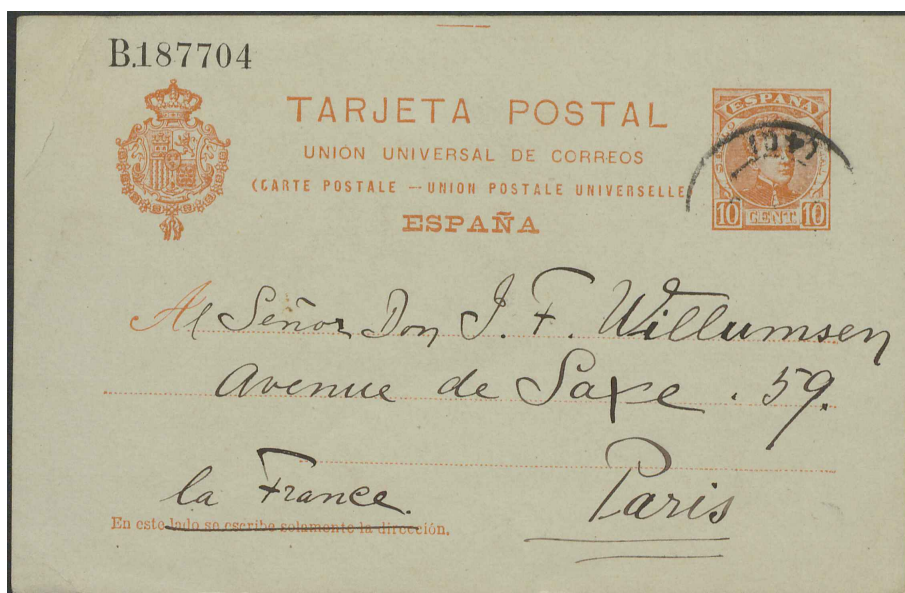 B.187704
TARJETA POSTAL
UNIÓN UNIVERSAL DE CORREOS
(CARTE POSTALE — UNION POSTALE UNIVERSELLE
ESPAÑA
ESPAÑA
10 CENT 10
Al Señor Don J. F. Willumsen
Avenue de Saxe . 59.
la France. Paris
En este lado se escribe solamente la dirección.